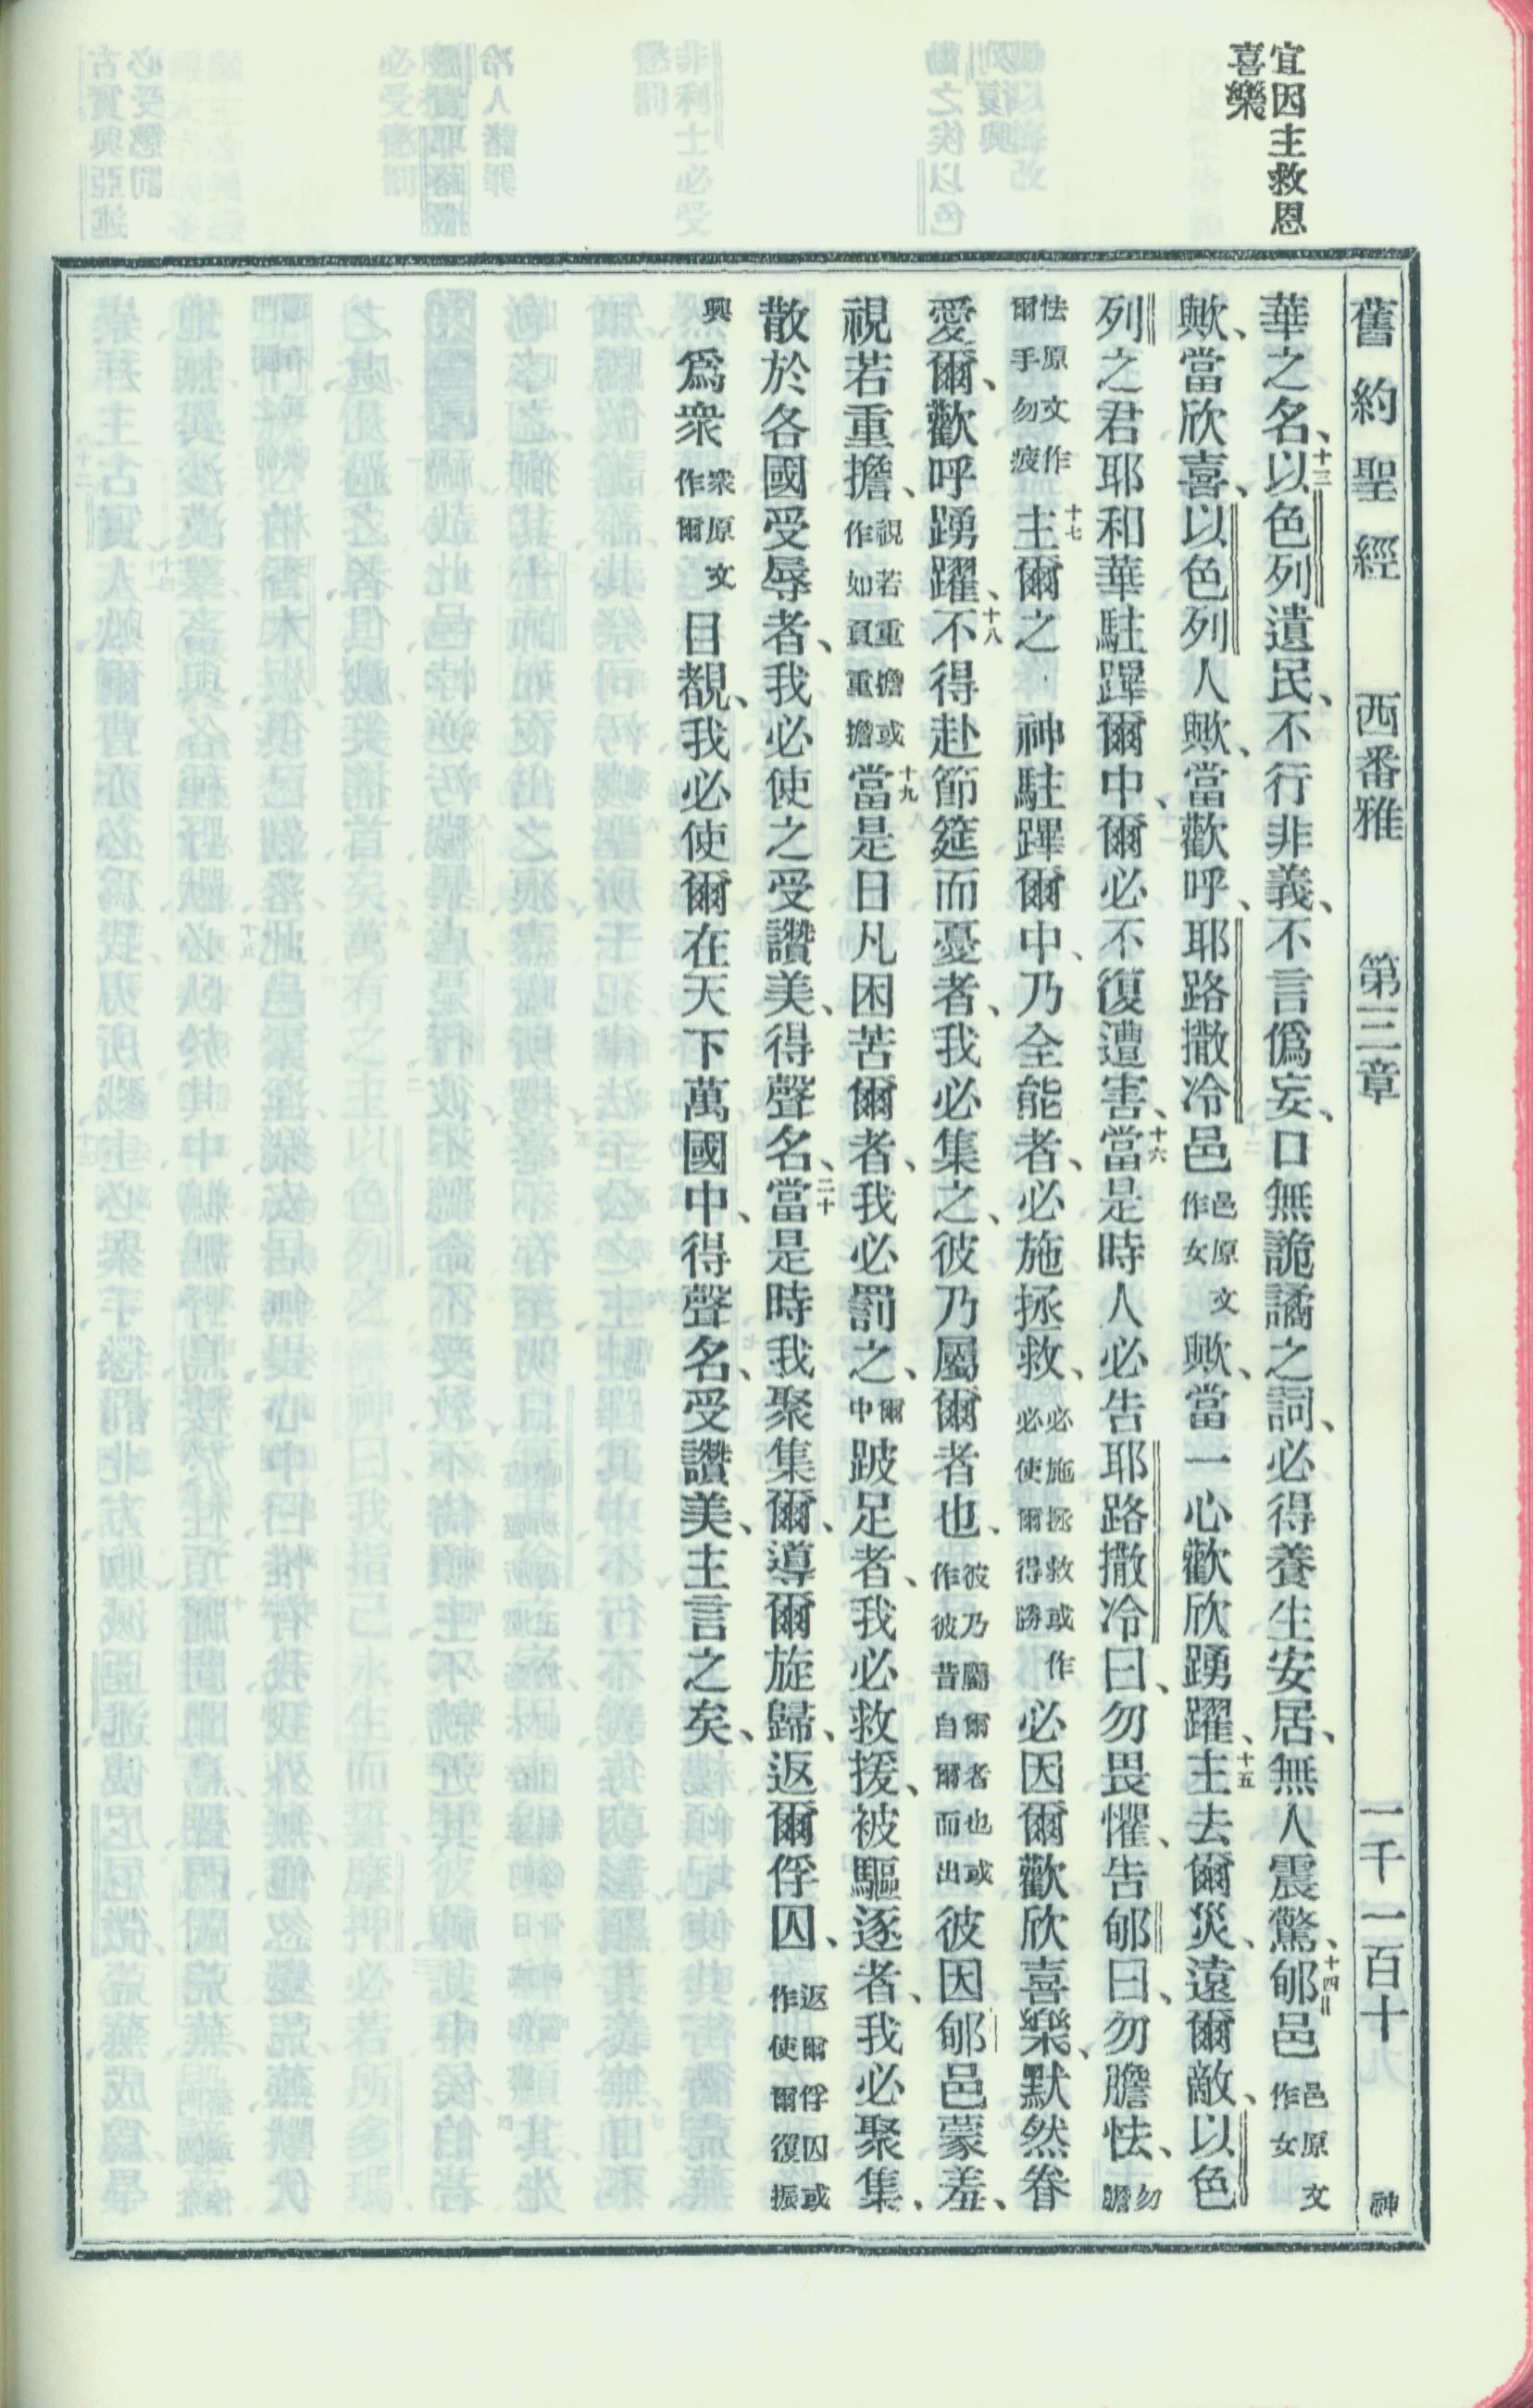 宜因主救恩
喜樂
舊約聖經 西番雅 第三章 一千一百十 神
華之名、十三以色列遺民、不行非義、不言僞妄、口無詭譎之詞、必得養生安居、無人震驚、十四郇邑邑原文作女
歟、當欣喜、以色列人歟、當歡呼、耶路撒冷邑邑原文作女歟、當一心歡欣踴躍、十五主去爾災、遠爾敵、以色
列之君耶和華駐蹕爾中、爾必不復遭害、十六當是時人必告耶路撒冷曰、勿畏懼、告郇曰、勿膽怯、勿膽
怯原文作爾手勿疲十七主爾之 神駐蹕爾中、乃全能者、必施拯救、必施拯救或作必使爾得勝必因爾歡欣喜樂、默然眷
愛爾、歡呼踴躍、十八不得赴節筵而憂者、我必集之、彼乃屬爾者也、彼乃屬爾者也或作彼昔自爾而出彼因郇邑蒙羞、
視若重擔、視若重擔或作如頁重擔十九當是日凡困苦爾者、我必罰之、爾中跛足者、我必救援、被驅逐者、我必聚集、
散於各國受辱者、我必使之受讚美、得聲名、二十當是時我聚集爾、導爾旋歸、返爾俘囚、返爾俘囚或作使爾復振
興爲衆衆原文作爾目覩、我必使爾在天下萬國中、得聲名、受讚美、主言之矣、